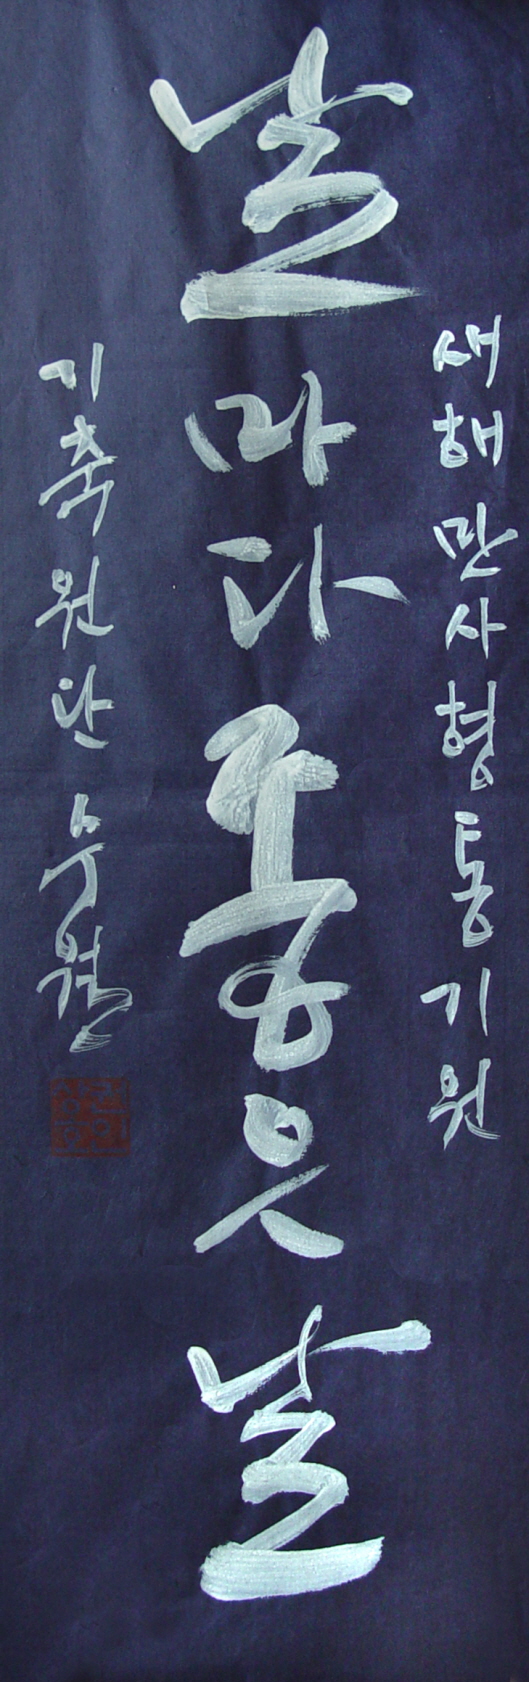 새해 만사형통 기원
날마다 좋은 날
기축 원단 수월